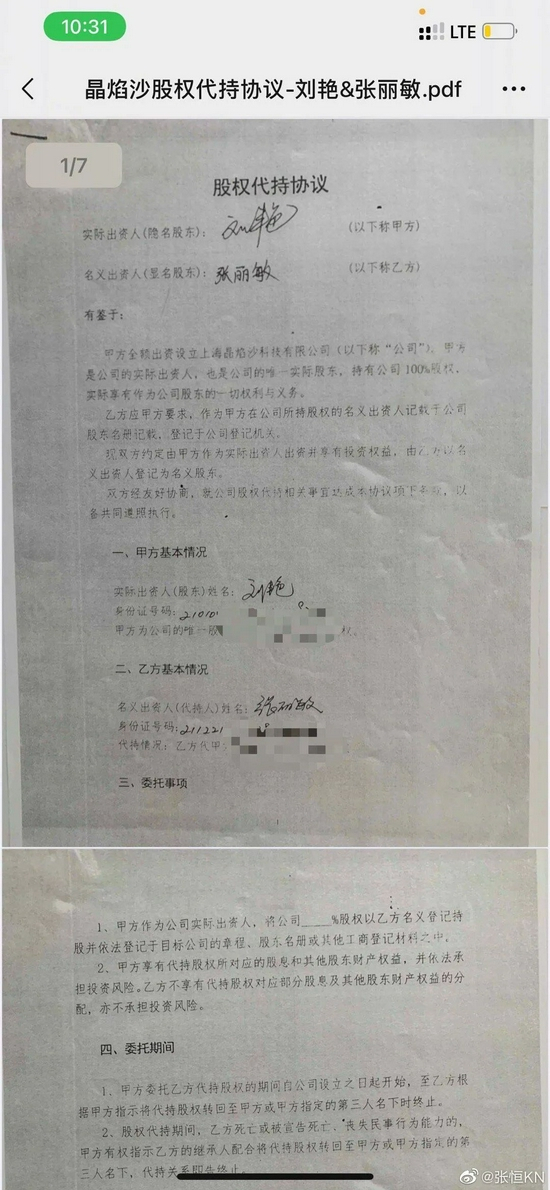 10:31
LTE
晶焰沙股权代持协议-刘艳&张丽敏.pdf
1/7
股权代持协议
实际出资人(隐名股东)：刘艳 (以下称甲方)
名义出资人(显名股东)：张丽敏 (以下称乙方)
有鉴于：
甲方全额出资设立上海晶焰沙科技有限公司(以下称“公司”)。甲方
是公司的实际出资人，也是公司的唯一实际股东，持有公司100%股权，
实际享有作为公司股东的一切权利与义务。
乙方应甲方要求，作为甲方在公司所持股权的名义出资人记载于公司
股东名册记载，登记于公司登记机关。
现双方约定由甲方作为实际出资人出资并享有投资权益，由乙方以名
义出资人登记为名义股东。
双方经友好协商，就公司股权代持相关事宜达成本协议项下条款，以
各共同遵照执行。
一、甲方基本情况
实际出资人(股东)姓名：刘艳
身份证号码：210101
甲方为公司的唯一股 权。
二、乙方基本情况
名义出资人(代持人)姓名：张丽敏
身份证号码：211221
代持情况：乙方代甲
三、委托事项
1
1、甲方作为公司实际出资人，将公司____%股权以乙方名义登记持
股并依法登记于目标公司的章程、股东名册或其他工商登记材料之中。
2、甲方享有代持股权所对应的股息和其他股东财产权益，并依法承
担投资风险。乙方不享有代持股权对应部分股息及其他股东财产权益的分
配，亦不承担投资风险。
四、委托期间
1、甲方委托乙方代持股权的期间自公司设立之日起开始，至乙方根
据甲方指示将代持股权转回至甲方或甲方指定的第三人名下时终止。
2、股权代持期间，乙方死亡或被宣告死亡、丧失民事行为能力的，
甲方有权指示乙方的继承人配合将代持股权转回至甲方或甲方指定的第
三人名下，代持关系即告终止。
@张恒KN